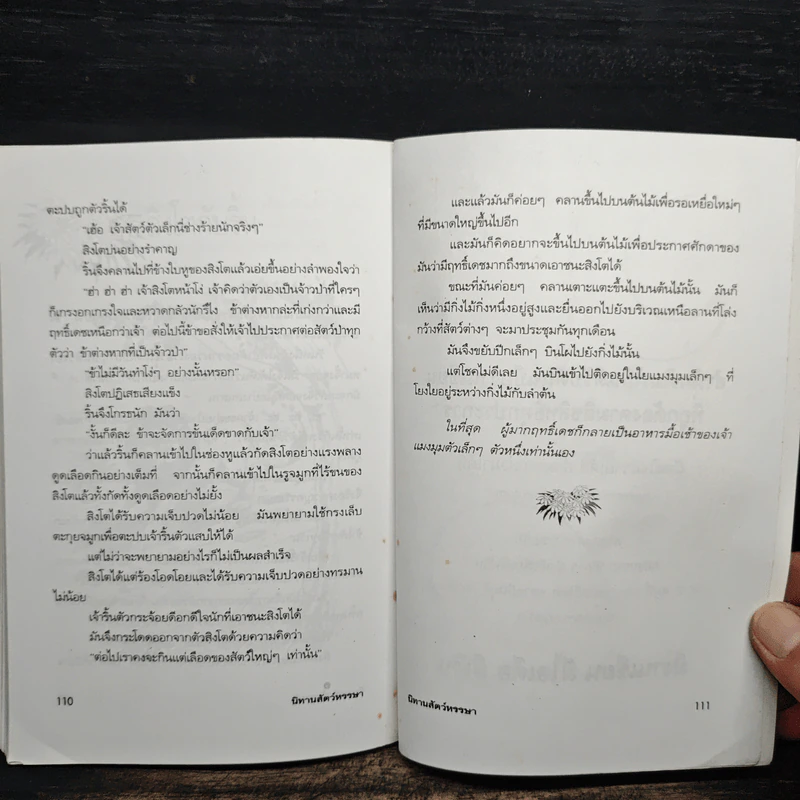 ตะปบถูกตัวริ้นได้
"เฮ้อ เจ้าสัตว์ตัวเล็กนี่ช่างร้ายนักจริงๆ"
สิงโตบ่นอย่างรำคาญ
ริ้นจึงคลานไปที่ข้างใบหูของสิงโตแล้วเอ่ยขึ้นอย่างลำพองใจว่า
"ฮ่า ฮ่า ฮ่า เจ้าสิงโตหน้าโง่ เจ้าคิดว่าตัวเองเป็นจ้าวป่าที่ใครๆ
ก็เกรงอกเกรงใจและหวาดกลัวนักรึไง ข้าต่างหากล่ะที่เก่งกว่าและมี
ฤทธิ์เดชเหนือกว่าเจ้า ต่อไปนี้ข้าขอสั่งให้เจ้าไปประกาศต่อสัตว์ป่าทุก
ตัวว่า ข้าต่างหากที่เป็นจ้าวป่า"
"ข้าไม่มีวันทำโง่ๆ อย่างนั้นหรอก"
สิงโตปฏิเสธเสียงแข็ง
ริ้นจึงโกรธนัก มันว่า
"งั้นก็ดีละ ข้าจะจัดการขั้นเด็ดขาดกับเจ้า"
ว่าแล้วริ้นก็คลานเข้าไปในช่องหูแล้วกัดสิงโตอย่างแรงพลาง
ดูดเลือดกินอย่างเต็มที่ จากนั้นก็คลานเข้าไปในรูจมูกที่ไร้ขนของ
สิงโตแล้วทั้งกัดทั้งดูดเลือดอย่างไม่ยั้ง
สิงโตได้รับความเจ็บปวดไม่น้อย มันพยายามใช้กรงเล็บ
ตะกุยจมูกเพื่อตะปบเจ้าริ้นตัวแสบให้ได้
แต่ไม่ว่าจะพยายามอย่างไรก็ไม่เป็นผลสำเร็จ
สิงโตได้แต่ร้องโอดโอยและได้รับความเจ็บปวดอย่างทรมาน
ไม่น้อย
เจ้าริ้นตัวกระจ้อยดีอกดีใจนักที่เอาชนะสิงโตได้
มันจึงกระโดดออกจากตัวสิงโตด้วยความคิดว่า
"ต่อไปเราคงจะกินแต่เลือดของสัตว์ใหญ่ๆ เท่านั้น"
110
นิทานสัตว์หรรษา
และแล้วมันก็ค่อยๆ คลานขึ้นไปบนต้นไม้เพื่อรอเหยื่อใหม่ๆ
ที่มีขนาดใหญ่ขึ้นไปอีก
และมันก็คิดอยากจะขึ้นไปบนต้นไม้เพื่อประกาศศักดาของ
มันว่ามีฤทธิ์เดชมากถึงขนาดเอาชนะสิงโตได้
ขณะที่มันค่อยๆ คลานเตาะแตะขึ้นไปบนต้นไม้นั้น มันก็
เห็นว่ามีกิ่งไม้กิ่งหนึ่งอยู่สูงและยื่นออกไปยังบริเวณเหนือลานที่โล่ง
กว้างที่สัตว์ต่างๆ จะมาประชุมกันทุกเดือน
มันจึงขยับปีกเล็กๆ บินโผไปยังกิ่งไม้นั้น
แต่โชคไม่ดีเลย มันบินเข้าไปติดอยู่ในใยแมงมุมเล็กๆ ที่
โยงใยอยู่ระหว่างกิ่งไม้กับลำต้น
ในที่สุด ผู้มากฤทธิ์เดชก็กลายเป็นอาหารมื้อเช้าของเจ้า
แมงมุมตัวเล็กๆ ตัวหนึ่งเท่านั้นเอง
นิทานสัตว์หรรษา
111